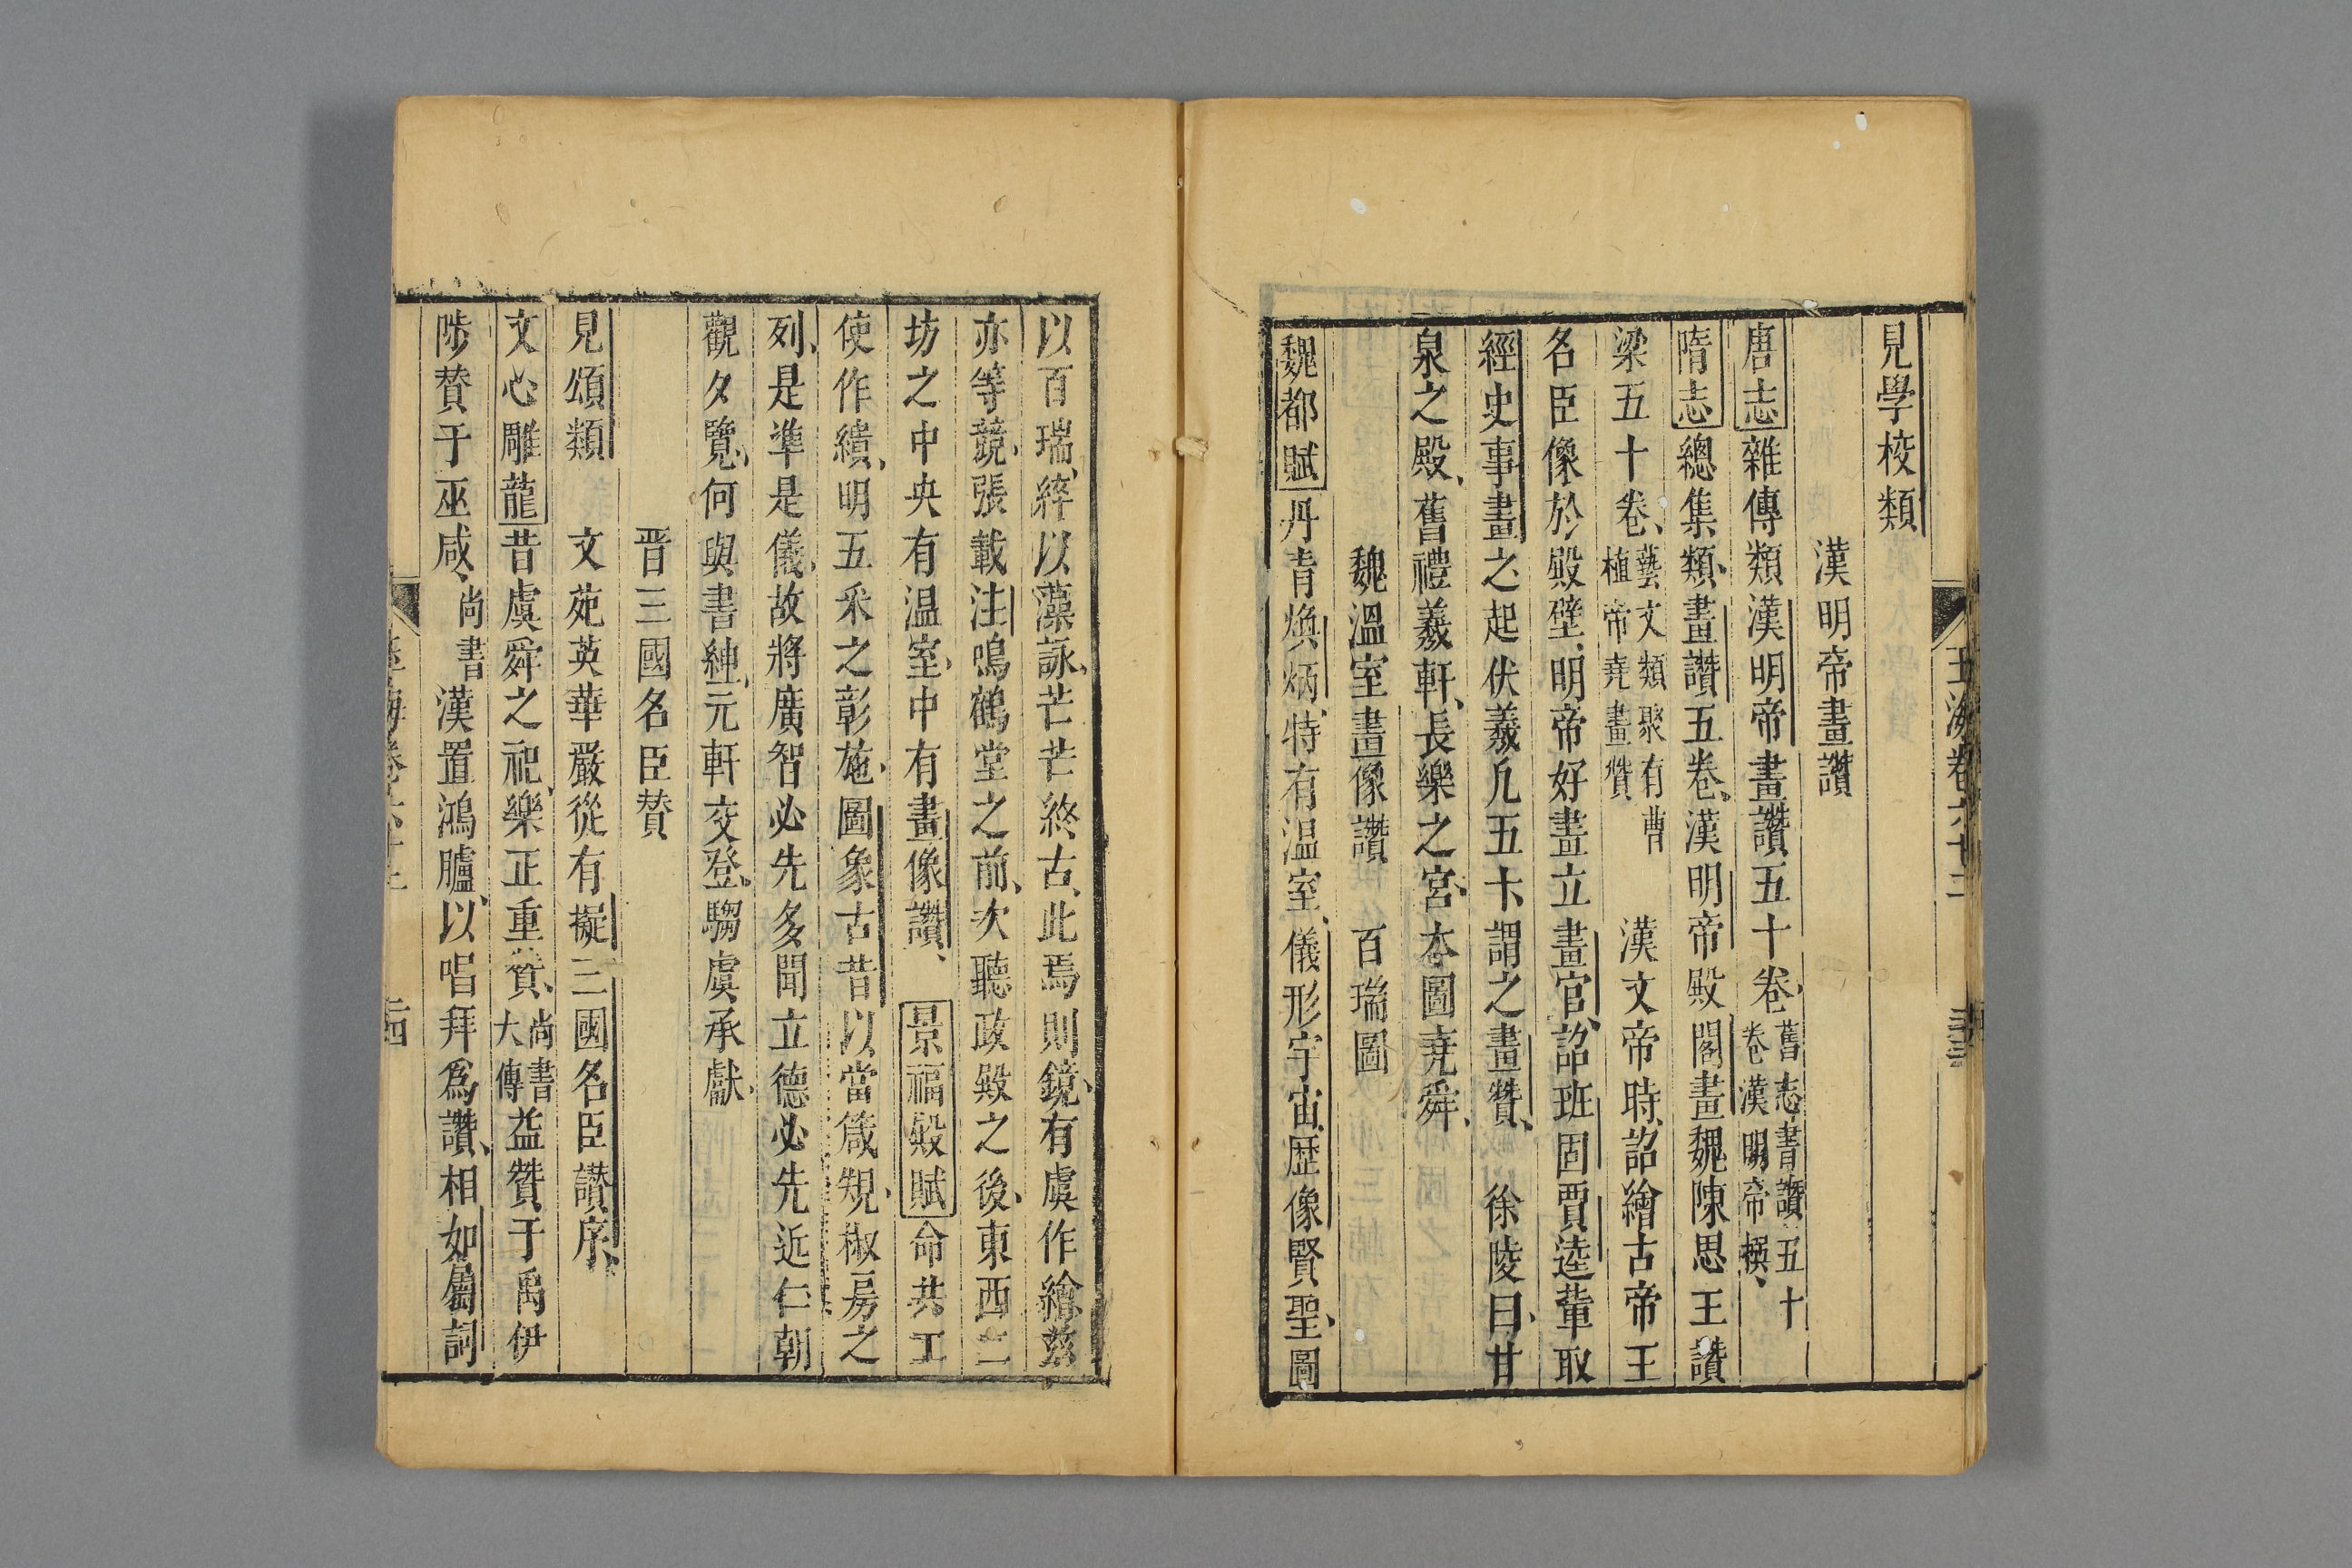 見學校類
漢明帝畫讚
唐志雜傳類漢明帝畫讚五十卷、舊志書讚五十卷漢明帝撰、
隋志總集類、畫讚五卷、漢明帝殿閣畫魏陳思王讚
梁五十卷、藝文類聚有曹植帝堯畫贊 漢文帝時、詔繪古帝王
名臣像於殿壁、明帝好畫立畫官、詔班固賈逵軰取
經史事畫之起伏羲凡五十謂之畫贊、徐陵曰、甘
泉之殿、舊禮羲軒、長樂之宮、本圖堯舜、
魏溫室畫像讚 百瑞圖
魏都賦丹青煥炳、特有溫室、儀形宇宙、歷像賢聖、圖
以百瑞、綷以藻詠、芒芒終古、此焉則鏡、有虞作繪、茲
亦等競、張載注鳴鶴堂之前、次聽政殿之後、東西二
坊之中央有溫室、中有畫像讚、景福殿賦命共工
使作繢、明五采之彰施、圖象古昔以當箴規、椒房之
列、是準是儀、故將廣智必先多聞立德必先近仁朝
觀夕覽、何與書紳、元軒交登、騶虞承獻、
晉三國名臣贊
見頌類 文苑英華嚴從有擬三國名臣讚序、
文心雕龍昔虞舜之祀、樂正重贊、尚書大傳益贊于禹伊
陟贊于巫咸、尚書漢置鴻臚、以唱拜爲讚、相如屬詞